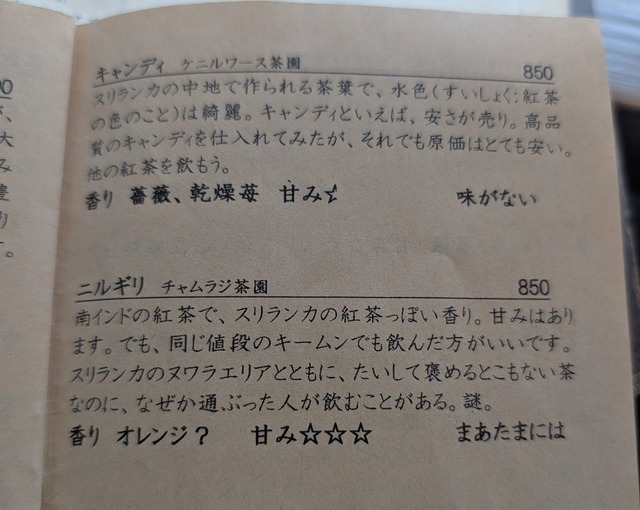 キャンディ ケニルワース茶園 850
スリランカの中地で作られる茶葉で、水色(すいしょく:紅茶
の色のこと)は綺麗。キャンディといえば、安さが売り。高品
質のキャンディを仕入れてみたが、それでも原価はとても安い。
他の紅茶を飲もう。
香り 薔薇、乾燥苺 甘み 味がない
ニルギリ チャムラジ茶園 850
南インドの紅茶で、スリランカの紅茶っぽい香り。甘みはあり
ます。でも、同じ値段のキームンでも飲んだ方がいいです。
スリランカのヌワラエリアとともに、たいして褒めるとこもない茶
なのに、なぜか通ぶった人が飲むことがある。謎。
香り オレンジ? 甘み☆☆☆ まあたまには